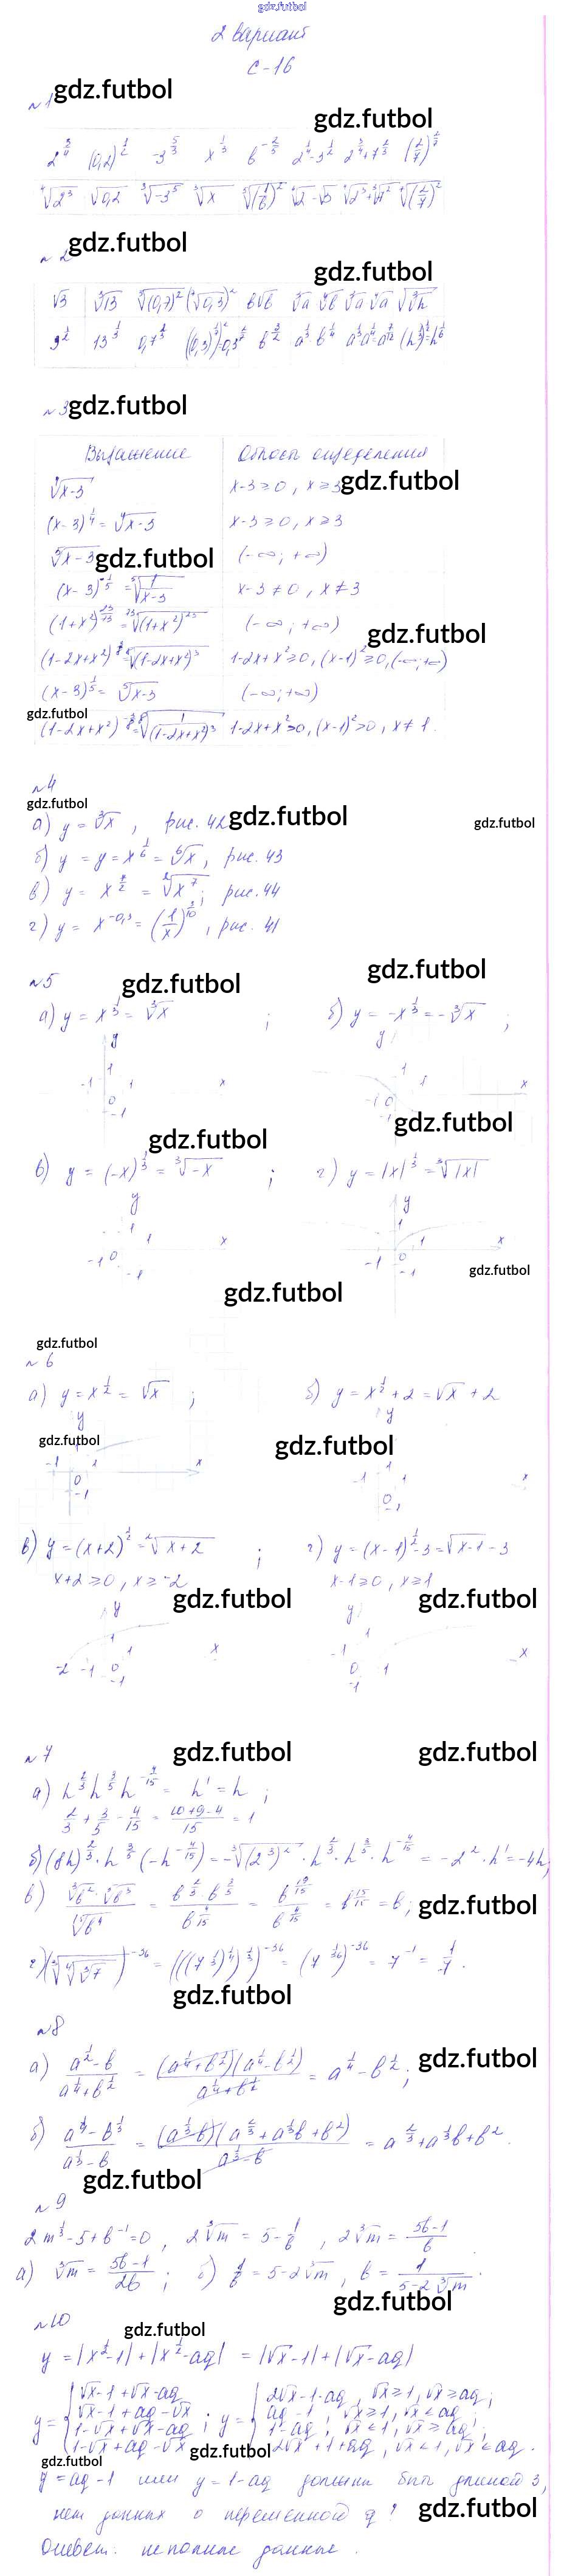 gdz.futbol
2 вариант
С-16
№1 gdz.futbol
gdz.futbol
2^(3/4) (0,2)^(1/2) -3^(5/3) x^(1/3) b^(-2/5) 2^(1/4)-3^(1/2) 2^(3/4)+7^(2/3)
⁴√2³ √0,2 ³√-3⁵ ³√x
gdz.futbol
№2
gdz.futbol
√3 ³√13 (³√0,3)² b√b ³√a ⁴√b ³√a ⁴√a √³√h
3^(1/2) 13^(1/3) b^(3/2) a^(1/3) b^(1/4) a^(1/3)a^(1/4)=a^(7/12) (h^(1/3))^(1/2)=h^(1/6)
№3 gdz.futbol
Выражение Область определения
x-3≥0, x≥3 gdz.futbol
(x-3)^(1/4) = ⁴√x-3 x-3≥0, x≥3
⁵√x-3 gdz.futbol (-∞; +∞)
(x-3)^(-1/5) = ⁵√1/(x-3) x-3≠0, x≠3
(-∞; +∞) gdz.futbol
(1-2x+x²)^(3/8) = ⁸√(1-2x+x²)³ 1-2x+x²≥0, (x-1)²≥0, (-∞;+∞)
(x-3)^(1/5) = ⁵√x-3 (-∞;+∞)
gdz.futbol
(1-2x+x²)^(-3/8) = ⁸√1/(1-2x+x²)³ 1-2x+x²>0, (x-1)²>0, x≠1.
№4
gdz.futbol
а) y = ³√x, рис. 42 gdz.futbol gdz.futbol
б) y = y = x^(1/6) = ⁶√x, рис. 43
в) y = x^(7/2) = ²√x⁷; рис. 44
г) y = x^(-0,3) = (1/x)^(3/10), рис. 41
gdz.futbol
№5 gdz.futbol
а) y = x^(1/3) = ³√x ; б) y = -x^(1/3) = -³√x ;
y y
1 1
-1 1 x 1 x
0 -1 0
-1 -1
gdz.futbol
gdz.futbol
в) y = (-x)^(1/3) = ³√-x ; г) y = |x|^(1/3) = ³√|x|
y y
1 1
1 x 1 x
-1 0 -1 0
-1 -1
gdz.futbol
gdz.futbol
gdz.futbol
№6
а) y = x^(1/2) = √x ; б) y = x^(1/2) + 2 = √x + 2
y y
gdz.futbol gdz.futbol
-1 1 x -1 1 x
0 0
-1 -1
в) y = (x+2)^(1/2) = ²√x+2 ; г) y = (x-1)^(1/2) - 3 = √x-1 - 3
x+2≥0, x≥-2 x-1≥0, x≥1
gdz.futbol gdz.futbol
y y
1 1
1 x -1 x
-2 -1 0 0 1
-1 -1
№7 gdz.futbol gdz.futbol
а) h^(2/3) h^(3/5) h^(-4/15) = h¹ = h ;
2/3 + 3/5 - 4/15 = (10+9-4)/15 = 1
б) (8h)^(2/3) · h^(3/5) (-h^(-4/15)) = -³√(2³)² · h^(2/3) · h^(3/5) · h^(-4/15) = -2² · h¹ = -4h;
в) ³√b² · ⁵√b³ / ¹⁵√b⁴ = b^(2/3) · b^(3/5) / b^(4/15) = b^(19/15) / b^(4/15) = b^(15/15) = b; gdz.futbol
г) (³√⁴√³√7)^(-36) = (((7^(1/3))^(1/4))^(1/3))^(-36) = (7^(1/36))^(-36) = 7^(-1) = 1/7.
gdz.futbol
№8
а) (a^(1/2)-b)/(a^(1/4)+b^(1/2)) = (a^(1/4)+b^(1/2))(a^(1/4)-b^(1/2))/(a^(1/4)+b^(1/2)) = a^(1/4)-b^(1/2); gdz.futbol
б) = (a^(1/3)-b)(a^(2/3)+a^(1/3)b+b²)/(a^(1/3)-b) = a^(2/3)+a^(1/3)b+b².
gdz.futbol
№9
2m^(1/3)-5+b^(-1)=0, 2³√m = 5-1/b, 2³√m = (5b-1)/b
а) ³√m = (5b-1)/2b ; б) 1/b = 5-2³√m, b = 1/(5-2³√m).
gdz.futbol
№10
gdz.futbol
y = |x^(1/2)-1|+|x^(1/2)-aq| = |√x-1|+|√x-aq|
y = { √x-1+√x-aq ; y = { 2√x-1-aq, √x≥1, √x≥aq;
√x-1+aq-√x aq-1, √x≥1, √x<aq;
1-√x+√x-aq 1-aq, √x<1, √x≥aq;
1-√x+aq-√x gdz.futbol -2√x+1+aq, √x<1, √x<aq.
gdz.futbol
y = aq-1 или y = 1-aq должны быть длиной 3,
нет данных о переменной q! gdz.futbol
Ответ: неполные данные.